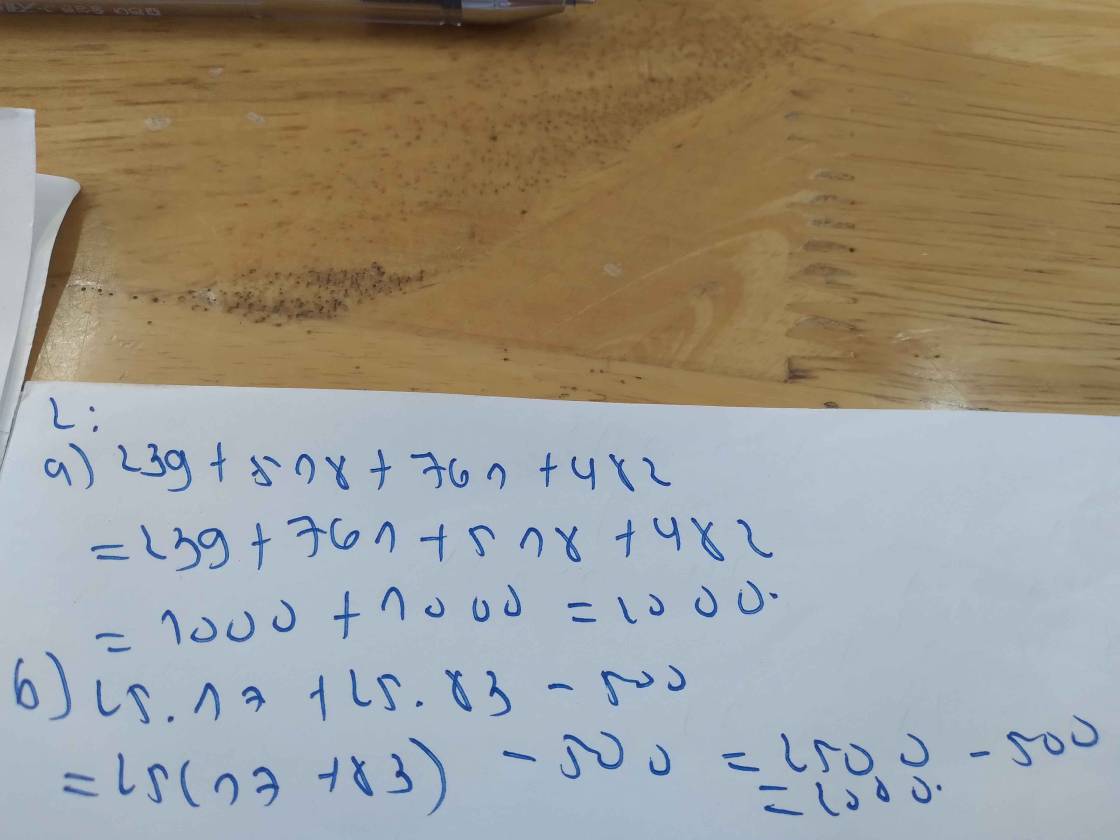 2:
a) 239 + 518 + 761 + 482
= 239 + 761 + 518 + 482
= 1000 + 1000 = 2000.
b) 25.17 + 25.83 - 500
= 25(17 + 83) - 500 = 2500 - 500
= 2000.